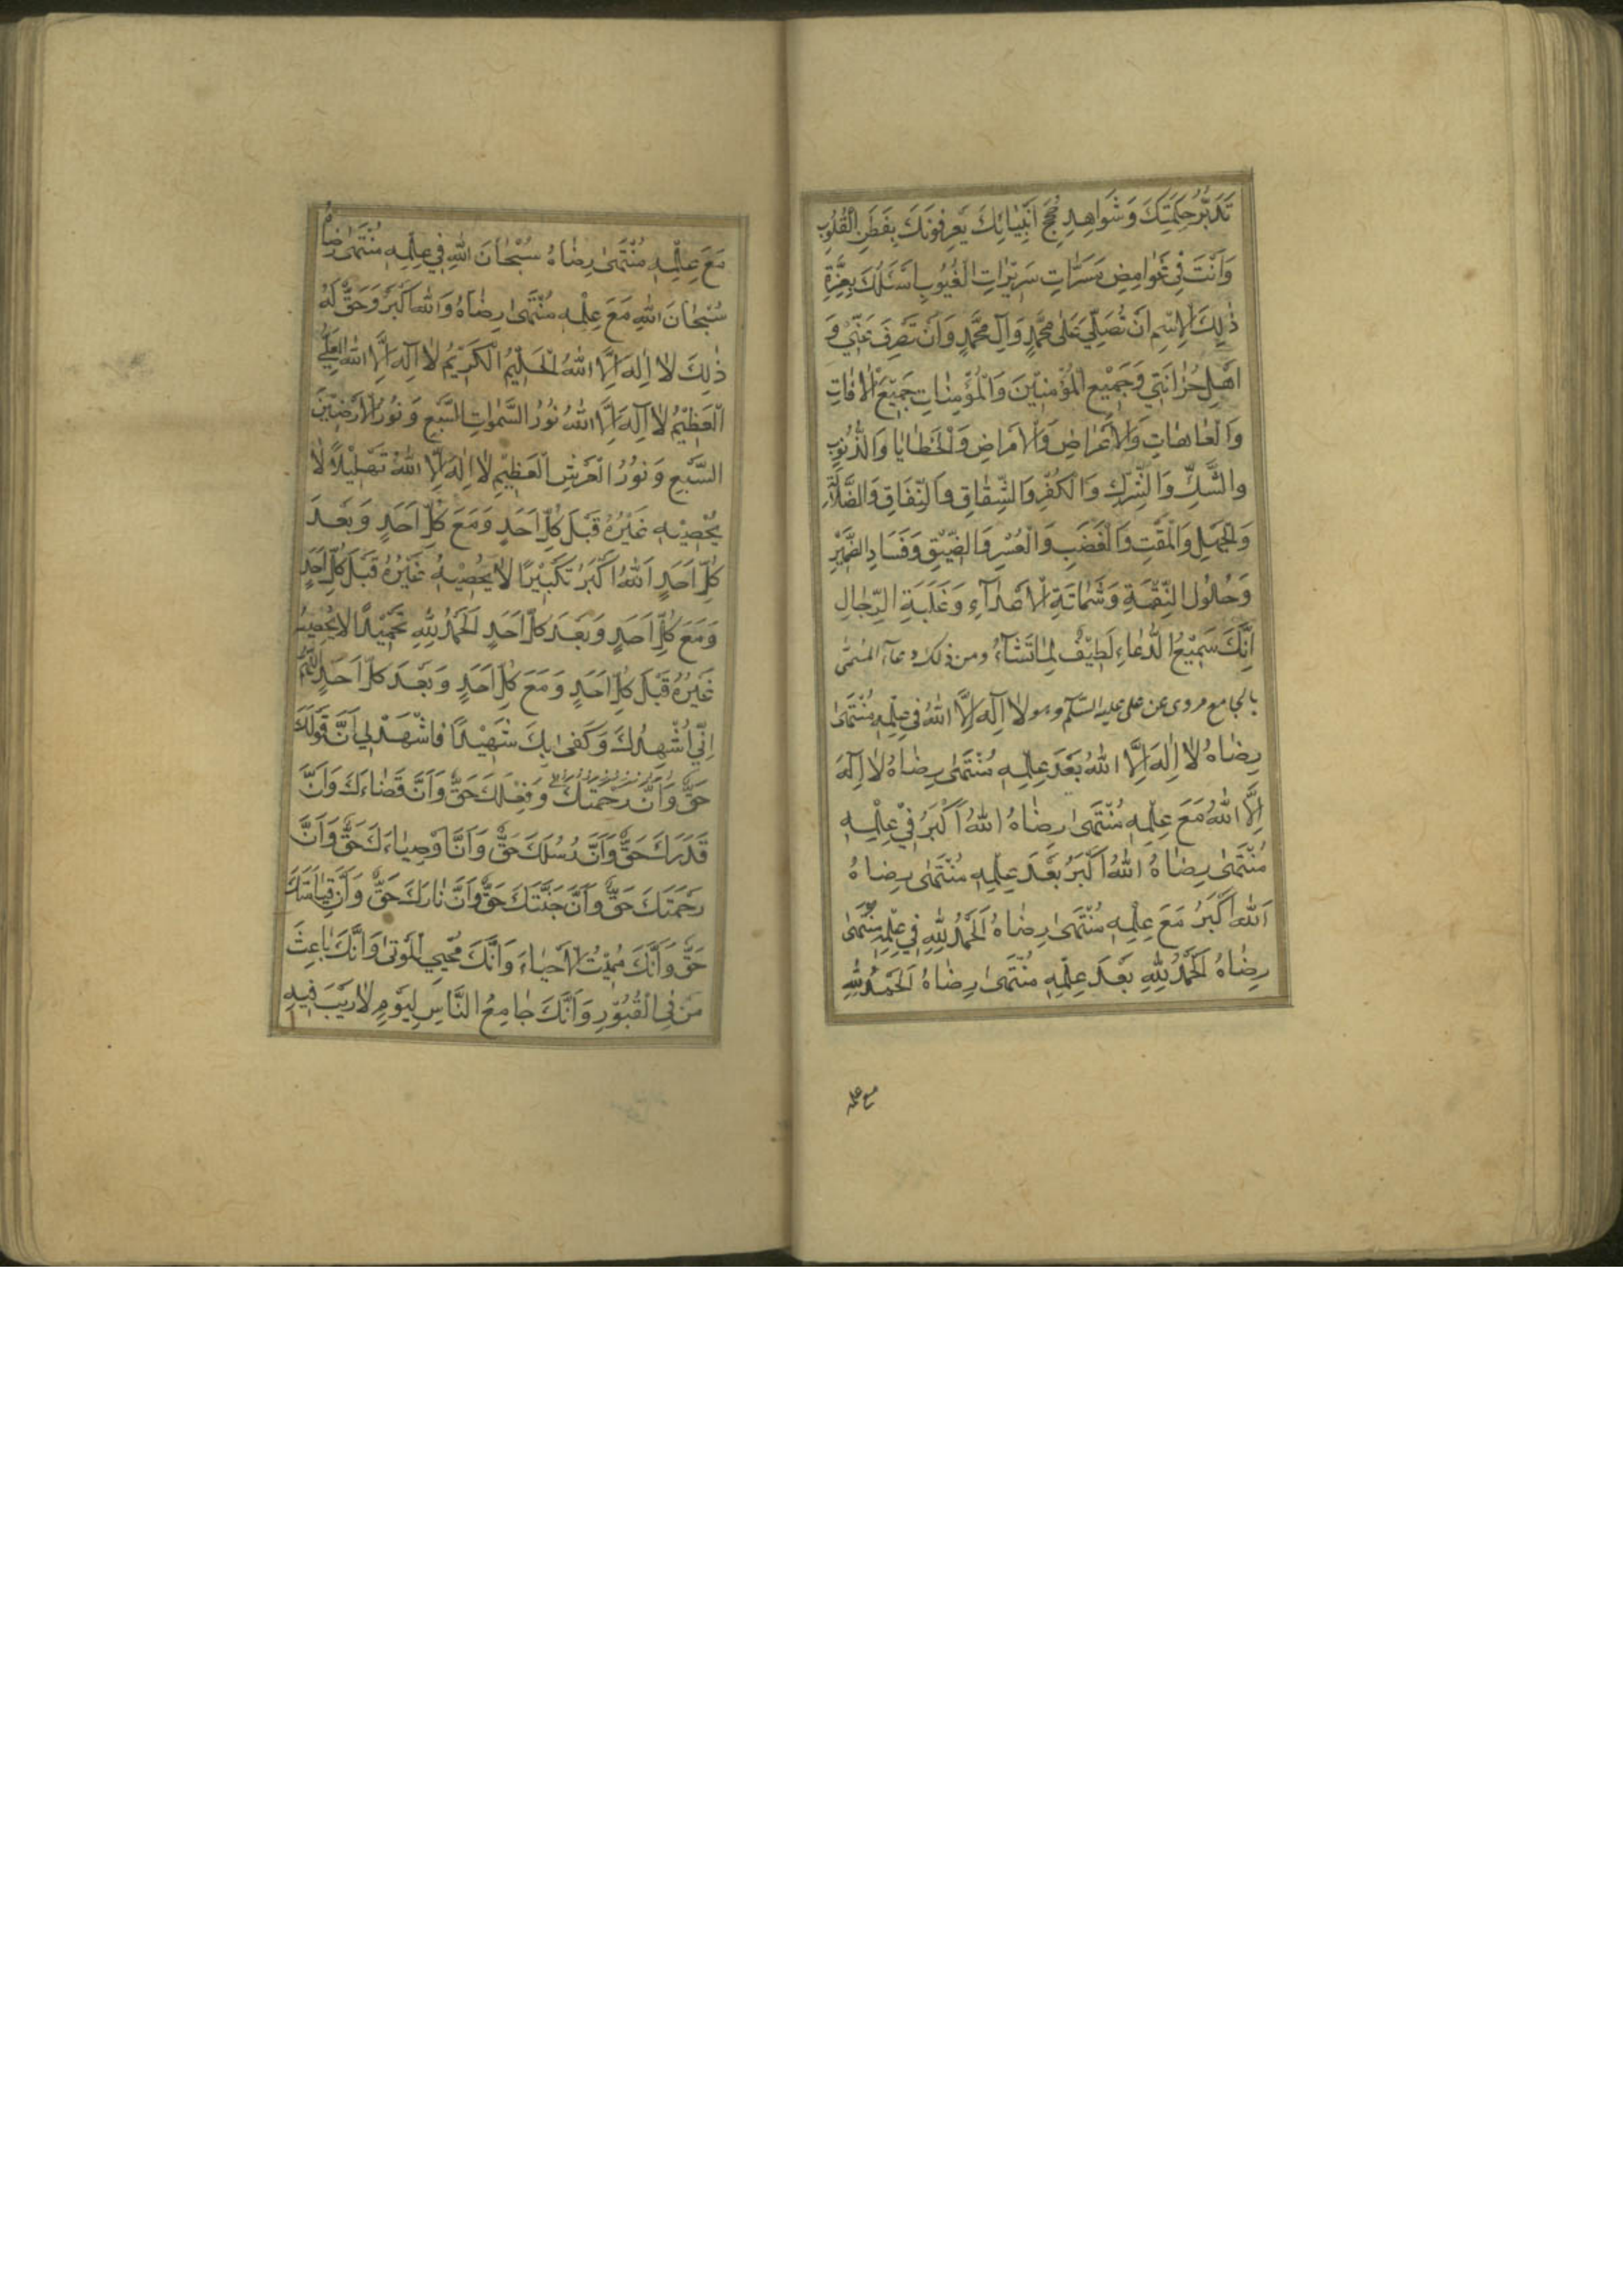 تَدَبُّرُ حِكْمَتِكَ وَشَوَاهِدِ حُجَجِ اَنْبِيَائِكَ يَعْرِفُونَكَ بِفِطَنِ الْقُلُوبِ
وَاَنْتَ فِي غَوَامِضِ مَسَرَّاتِ سَرِيرَاتِ الْغُيُوبِ اَسْئَلُكَ بِعِزَّةِ
ذٰلِكَ الْاِسْمِ اَنْ تُصَلِّيَ عَلٰى مُحَمَّدٍ وَآلِ مُحَمَّدٍ وَاَنْ تَصْرِفَ عَنِّي وَ
اَهْلِ حُزَانَتِي وَجَمِيْعِ الْمُؤْمِنِيْنَ وَالْمُؤْمِنَاتِ جَمِيْعَ الْاٰفَاتِ
وَالْعَاهَاتِ وَالْاَعْرَاضِ وَالْاَمْرَاضِ وَالْخَطَايَا وَالذُّنُوبِ
وَالشَّكِّ وَالشِّرْكِ وَالْكُفْرِ وَالشِّقَاقِ وَالنِّفَاقِ وَالضَّلَالَةِ
وَالْجَهْلِ وَالْمَقْتِ وَالْغَضَبِ وَالْعُسْرِ وَالضِّيْقِ وَفَسَادِ الضَّمِيْرِ
وَحُلُوْلِ النِّقْمَةِ وَشَمَاتَةِ الْاَعْدَآءِ وَغَلَبَةِ الرِّجَالِ
اِنَّكَ سَمِيْعُ الدُّعَاءِ لَطِيْفٌ لِمَا تَشَآءُ ومن ذلك دعآء المسمّى
بالجامع مروى عن على عليه السّلم وهو لَا اِلٰهَ اِلَّا اللهُ فِي عِلْمِهِ مُنْتَهىٰ
رِضَاهُ لَا اِلٰهَ اِلَّا اللهُ بَعْدَ عِلْمِهِ مُنْتَهىٰ رِضَاهُ لَا اِلٰهَ
اِلَّا اللهُ مَعَ عِلْمِهِ مُنْتَهىٰ رِضَاهُ اللهُ اَكْبَرُ فِيْ عِلْمِهِ
مُنْتَهىٰ رِضَاهُ اللهُ اَكْبَرُ بَعْدَ عِلْمِهِ مُنْتَهىٰ رِضَاهُ
اَللهُ اَكْبَرُ مَعَ عِلْمِهِ مُنْتَهىٰ رِضَاهُ اَلْحَمْدُ لِلّٰهِ فِي عِلْمِهِ مُنْتَهىٰ
رِضَاهُ اَلْحَمْدُ لِلّٰهِ بَعْدَ عِلْمِهِ مُنْتَهىٰ رِضَاهُ اَلْحَمْدُ لِلّٰهِ
مع علمه
مَعَ عِلْمِهِ مُنْتَهىٰ رِضَاهُ سُبْحَانَ اللهِ فِي عِلْمِهِ مُنْتَهىٰ رِضَاهُ
سُبْحَانَ اللهِ مَعَ عِلْمِهِ مُنْتَهىٰ رِضَاهُ وَاللهُ اَكْبَرُ وَحَقٌّ لَهُ
ذٰلِكَ لَا اِلٰهَ اِلَّا اللهُ الْحَلِيْمُ الْكَرِيْمُ لَا اِلٰهَ اِلَّا اللهُ الْعَلِيُّ
الْعَظِيْمُ لَا اِلٰهَ اِلَّا اللهُ نُوْرُ السَّمٰوَاتِ السَّبْعِ وَنُوْرُ الْاَرَضِيْنَ
السَّبْعِ وَنُوْرُ الْعَرْشِ الْعَظِيْمِ لَا اِلٰهَ اِلَّا اللهُ تَهْلِيْلًا لَا
يُحْصِيْهِ غَيْرُهُ قَبْلَ كُلِّ اَحَدٍ وَمَعَ كُلِّ اَحَدٍ وَبَعْدَ
كُلِّ اَحَدٍ اَللهُ اَكْبَرُ تَكْبِيْرًا لَا يُحْصِيْهِ غَيْرُهُ قَبْلَ كُلِّ اَحَدٍ
وَمَعَ كُلِّ اَحَدٍ وَبَعْدَ كُلِّ اَحَدٍ اَلْحَمْدُ لِلّٰهِ تَحْمِيْدًا لَا يُحْصِيْهِ
غَيْرُهُ قَبْلَ كُلِّ اَحَدٍ وَمَعَ كُلِّ اَحَدٍ وَبَعْدَ كُلِّ اَحَدٍ اَللّٰهُمَّ
اِنِّي اُشْهِدُكَ وَكَفىٰ بِكَ شَهِيْدًا فَاشْهَدْ لِي اَنَّ قَوْلَكَ
حَقٌّ وَاَنَّ رَحْمَتَكَ وَفِعْلَكَ حَقٌّ وَاَنَّ قَضَاءَكَ وَاَنَّ
قَدَرَكَ حَقٌّ وَاَنَّ رُسُلَكَ حَقٌّ وَاَنَّ اَوْصِيَاءَكَ حَقٌّ وَاَنَّ
رَحْمَتَكَ حَقٌّ وَاَنَّ جَنَّتَكَ حَقٌّ وَاَنَّ نَارَكَ حَقٌّ وَاَنَّ قِيَامَتَكَ
حَقٌّ وَاَنَّكَ مُمِيْتُ الْاَحْيَاءِ وَاَنَّكَ مُحْيِي الْمَوْتىٰ وَاَنَّكَ بَاعِثُ
مَنْ فِي الْقُبُوْرِ وَاَنَّكَ جَامِعُ النَّاسِ لِيَوْمٍ لَا رَيْبَ فِيهِ